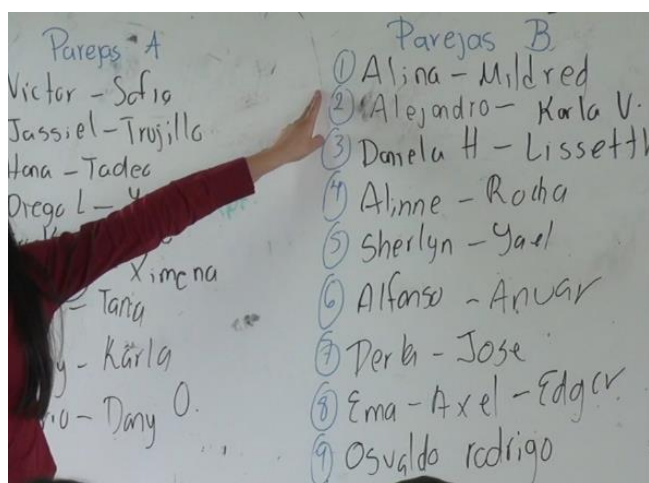 Parejas A
Victor - Sofia
Jassiel - Trujillo
Hana - Tadeo
L -
Ximena
- Tania
- Karla
- Dany O.
Parejas B
① Alina - Mildred
② Alejandro - Karla V.
③ Daniela H - Lissett
④ Alinne - Rocha
⑤ Sherlyn - Yael
⑥ Alfonso - Anuar
⑦ - Jose
⑧ Ema - Axel - Edgar
⑨ Osvaldo rodrigo